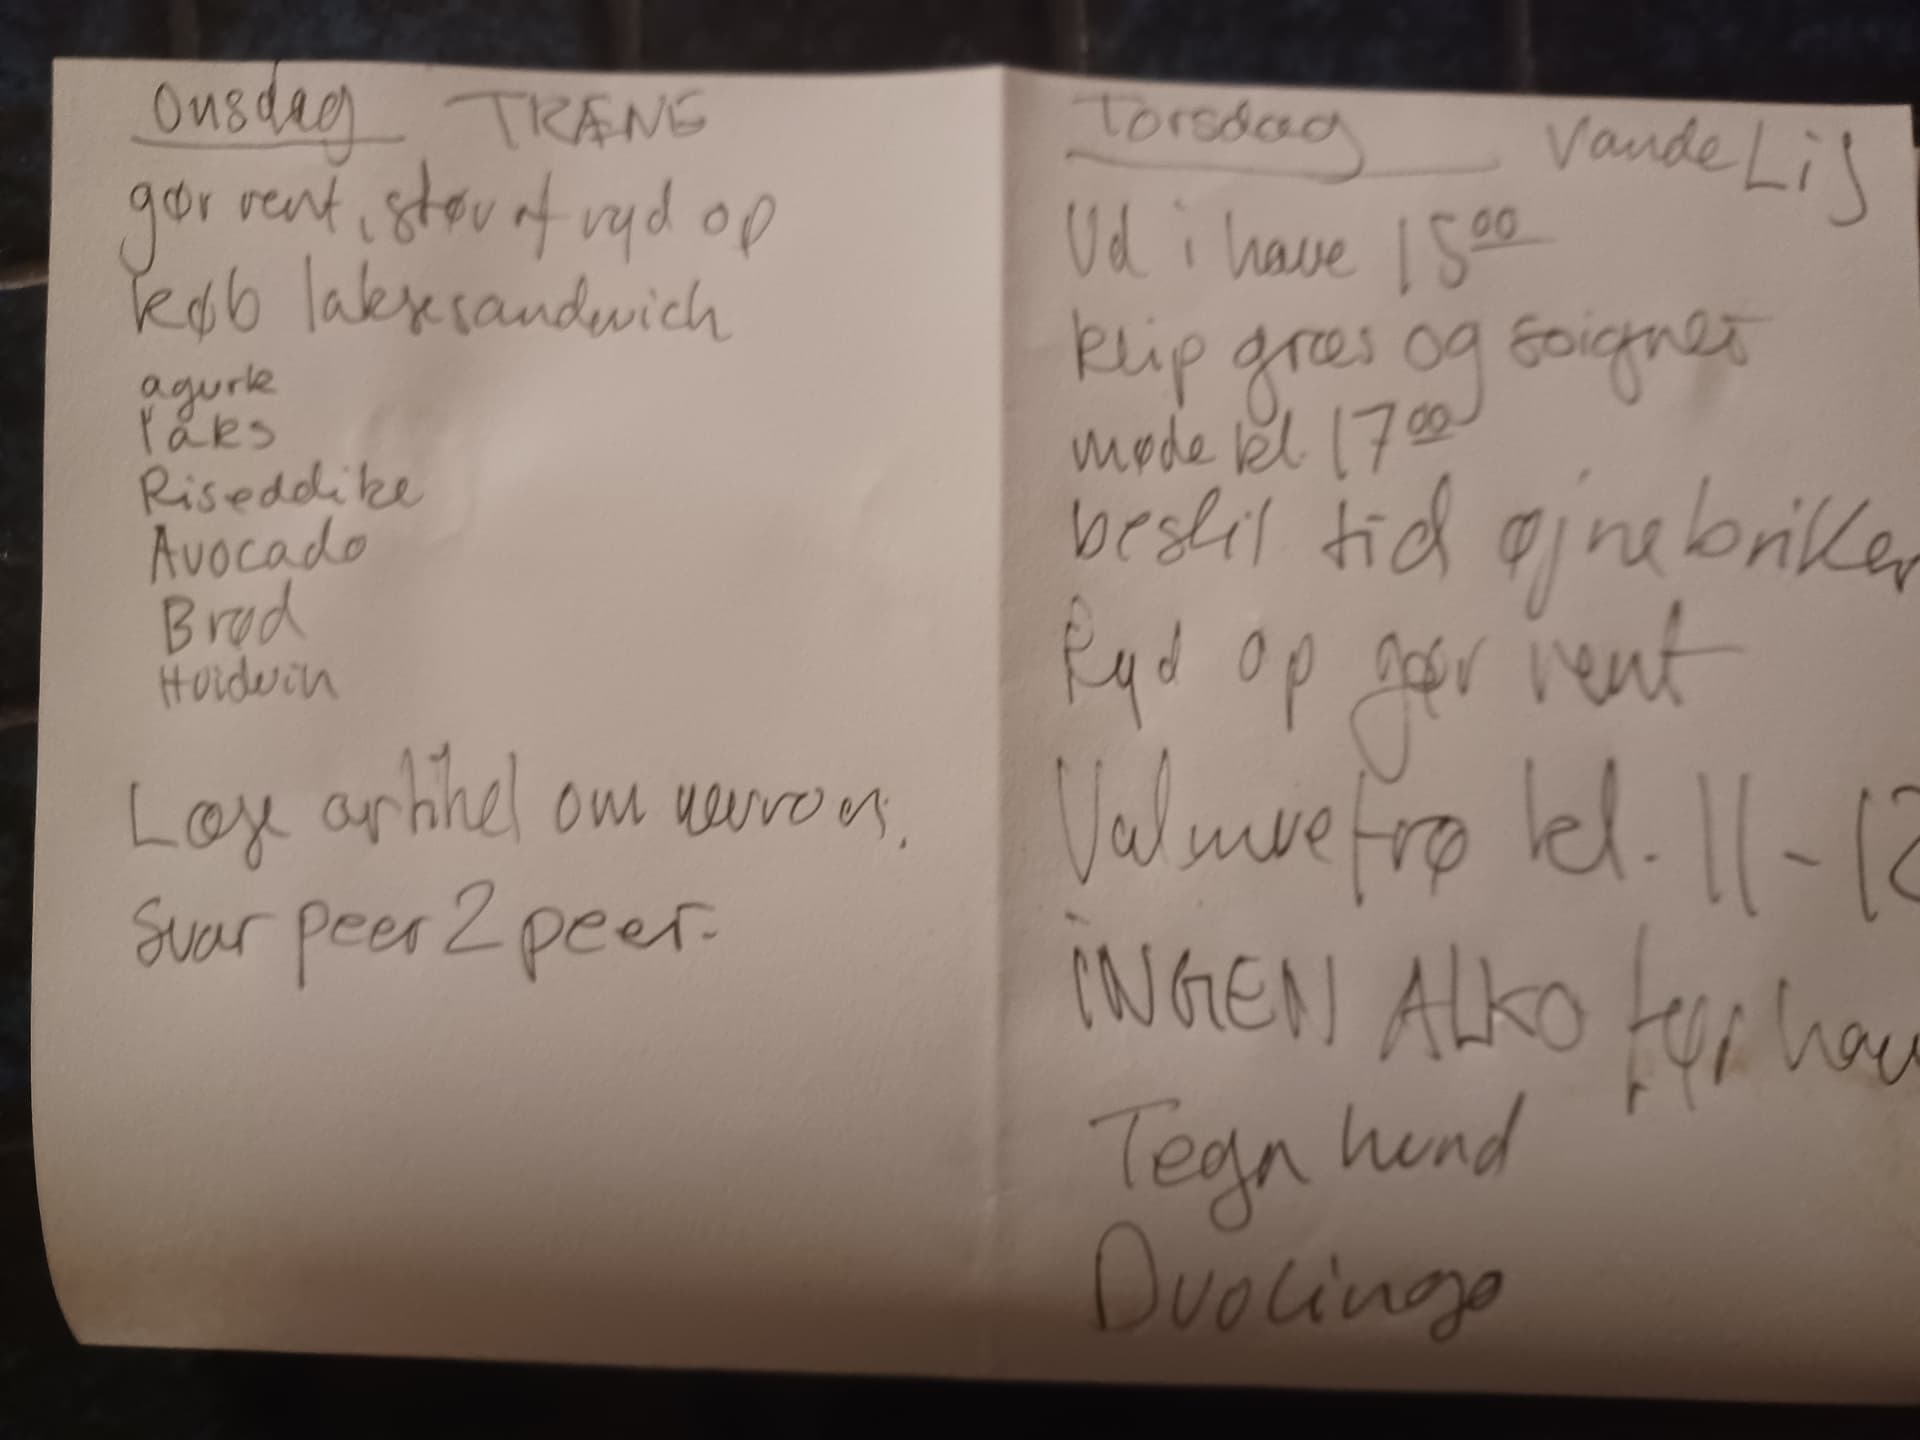 Onsdag TRÆNE
gør rent, støv af ryd op
køb laksesandwich
agurk
laks
Riseddike
Avocado
Brød
Hvidvin
Læse artikel om
Svar peer2peer.
Torsdag Vande
Ud i have 15⁰⁰
klip græs og soigner
møde kl. 17⁰⁰
bestil tid øjnebriller
Ryd op gør rent
Valmuefrø kl. 11-12
INGEN ALKO før hav
Tegn hund
Duolingo